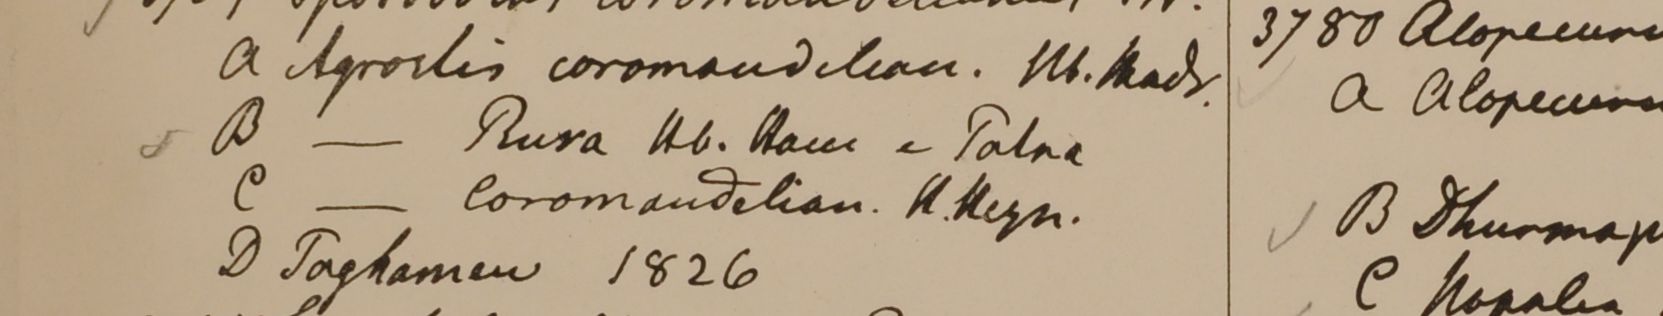 A Agrostis coromandelian. Hb. Madr.
B — Rura Hb. Ham e Patna
C — Coromandelian. H. Heyn.
D Taghamew 1826
3780 Alopecurus
A Alopecurus
B Dhurmap
C Napalia